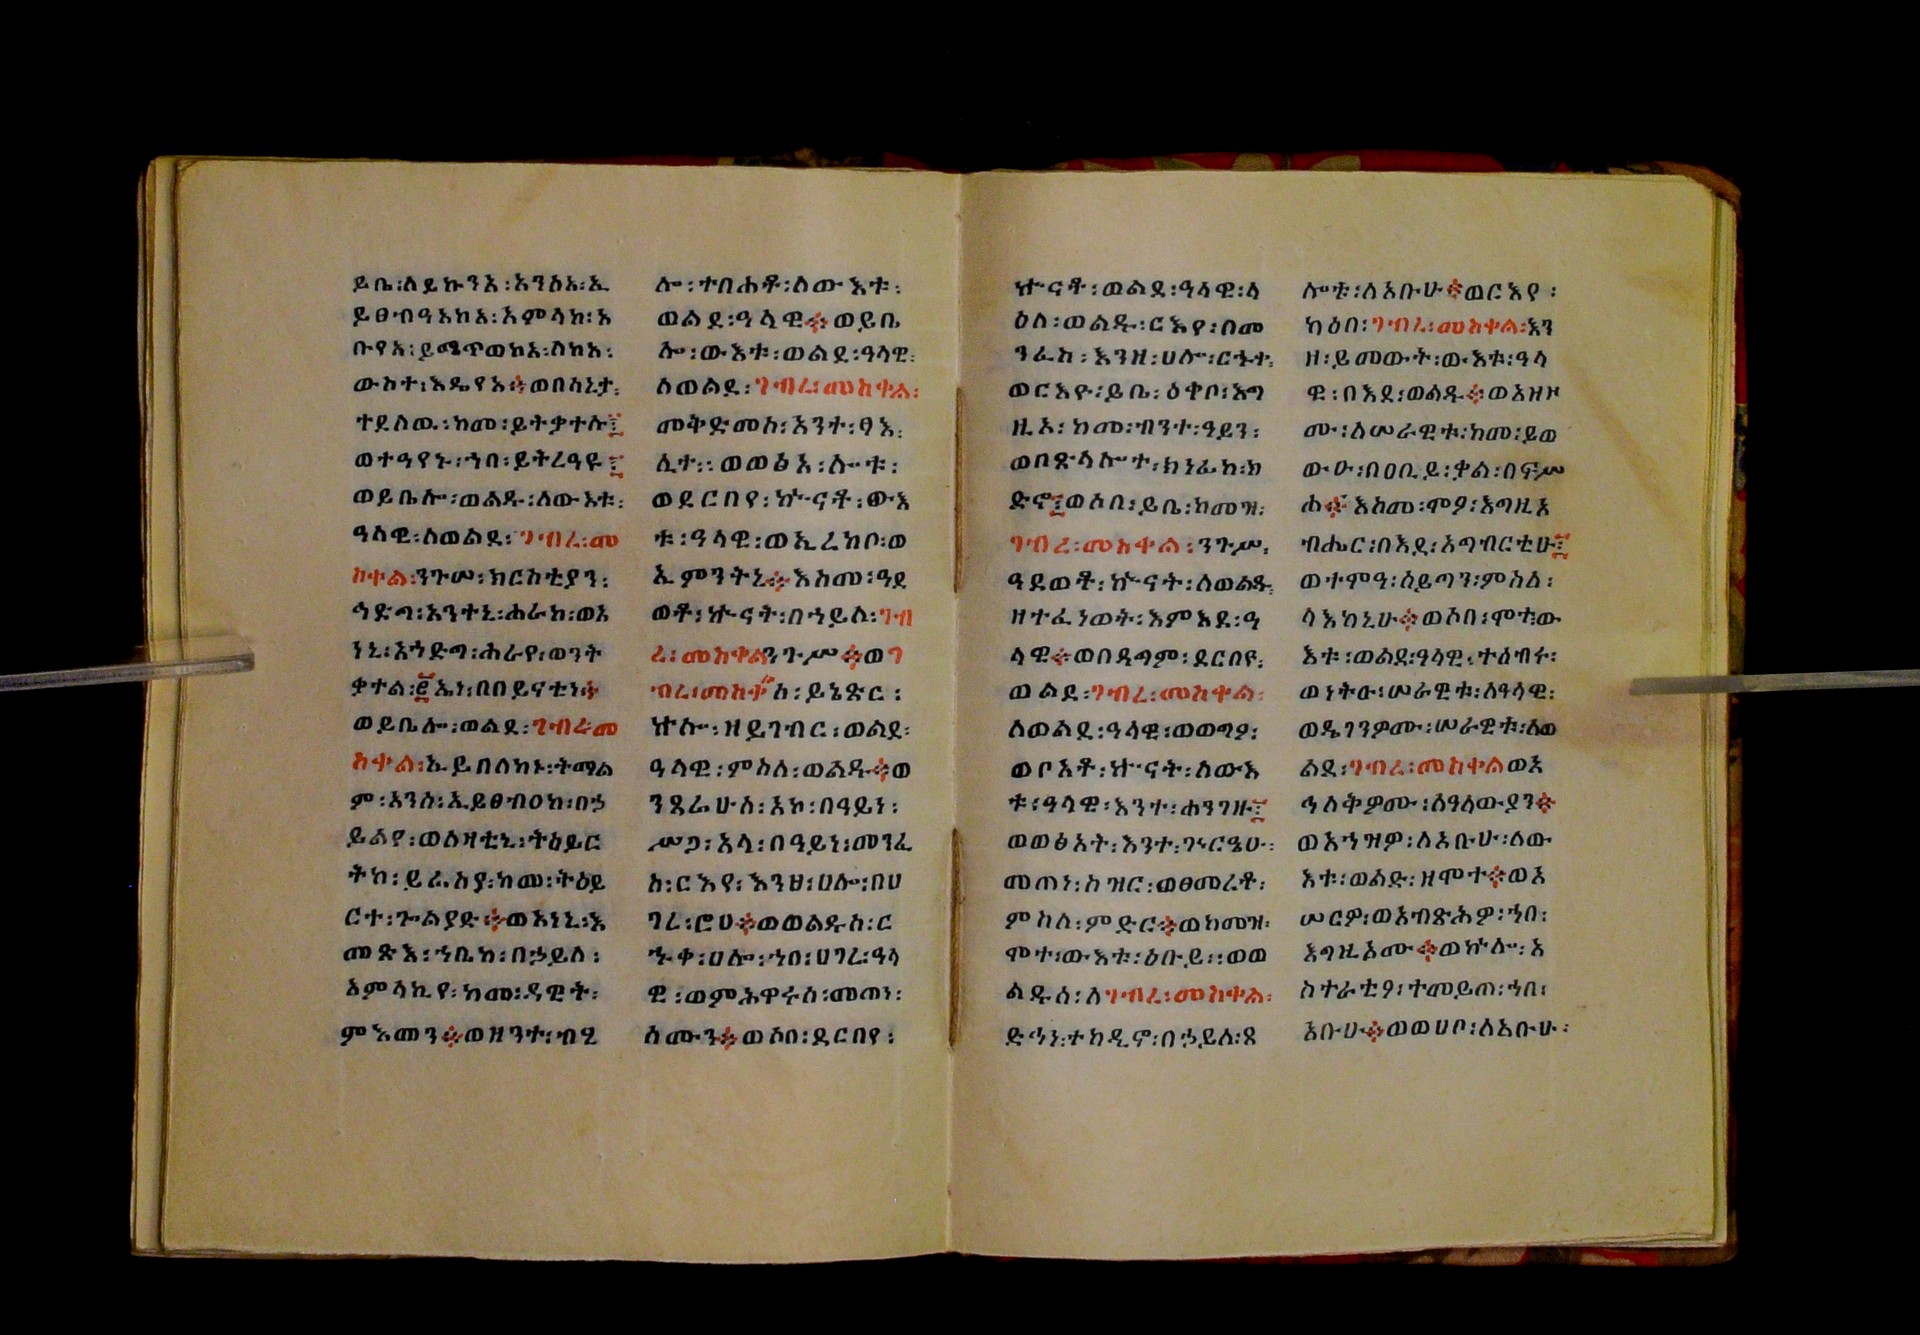 ይቤ፡ለይኩንአ፡አንስአ፡ኢ
ይፀብዓአከአ፡አምላክ፡አ
ቡየአ፡ይሜጥወከአ፡ለከአ፡
ውስተ፡እዴየአ፨ወበስኒታ፡
ተደለዉ፡ከመ፡ይትቃተሉ፤
ወተዓየኑ፡ኀበ፡ይትረዓዩ፤
ወይቤሎ፡ወልዱ፡ለውእቱ፡
ዓላዊ፡ለወልደ፡ገብረ፡መ
ስቀል፡ንጉሠ፡ክርስቲያን፡
ኅድግ፡አንተኒ፡ሐራከ፡ወአ
ነኒ፡አኀድግ፡ሐራየ፡ወንት
ቃተል፡፪ኤነ፡በበይናቲነ፨
ወይቤሎ፡ወልደ፡ገብረ፡መ
ስቀል፡ኢይበለከኑ፡ትማል
ም፡አንሰ፡ኢይፀብዐከ፡በኃ
ይልየ፡ወለዛቲኒ፡ትዕይር
ትከ፡ይሬእያ፡ከመ፡ትዕይ
ርተ፡ጎልያድ፨ወአነኒ፡እ
መጽእ፡ኀቤከ፡በኃይለ፡
አምላኪየ፡ከመ፡ዳዊት፡
ምእመን፨ወዘንተ፡ብሂ
ሎ፡ተበሐቶ፡ለውእቱ፡
ወልደ፡ዓላዊ፨ወይቤ
ሎ፡ውእቱ፡ወልደ፡ዓላዊ፡
ለወልደ፡ገብረ፡መስቀል፡
መቅድመሰ፡አንተ፡ፃእ፡
ሊተ፡፡ወወፅአ፡ሎቱ፡
ወደርበየ፡ኵናቶ፡ውእ
ቱ፡ዓላዊ፡ወኢረከቦ፡ወ
ኢምንትኒ፨እስመ፡ዓደ
ወቶ፡ኵናት፡በኃይለ፡ገብ
ረ፡መስቀልንጉሥ፨ወገ
ብረ፡መስቀልሰ፡ይኔጽር፡
ኵሎ፡ዘይገብር፡ወልደ፡
ዓላዊ፡ምስለ፡ወልዱ፨ወ
ንጻሬሁሰ፡አኮ፡በዓይነ፡
ሥጋ፡አላ፡በዓይነ፡መንፈ
ስ፡ርእየ፡እንዘ፡ሀሎ፡በሀ
ገረ፡ሮሀ፨ወወልዱሰ፡ር
ኁቀ፡ሀሎ፡ኀበ፡ሀገረ፡ዓላ
ዊ፡ወምሕዋሩሰ፡መጠነ፡
ሰሙን፨ወሶበ፡ደርበየ፡
ኵናቶ፡ወልደ፡ዓላዊ፡ላ
ዕለ፡ወልዱ፡ርእየ፡በመ
ንፈስ፡እንዘ፡ሀሎ፡ርኁተ፡
ወርእዮ፡ይቤ፡ዕቀቦ፡እግ
ዚኦ፡ከመ፡ብንተ፡ዓይን፡
ወበጽላሎተ፡ክነፊከ፡ክ
ድኖ፤ወሶበ፡ይቤ፡ከመዝ፡
ገብረ፡መስቀል፡ንጉሥ፡
ዓደወቶ፡ኵናት፡ለወልዱ፡
ዘተፈነወት፡እምእደ፡ዓ
ላዊ፨ወበዳግም፡ደርበዩ፡
ወልደ፡ገብረ፡መስቀል፡
ለወልደ፡ዓላዊ፡ወወግኦ፡
ወቦአቶ፡ኵናት፡ለውእ
ቱ፡ዓላዊ፡እንተ፡ሐንገዙ፤
ወወፅአት፡እንተ፡ገኀርዔሁ፡
መጠነ፡ስዝር፡ወፀመረቶ፡
ምስለ፡ምድር፨ወከመዝ፡
ሞተ፡ውእቱ፡ዕቡይ፡፡ወወ
ልዱሰ፡ለገብረ፡መስቀል፡
ድኅነ፡ተከዲኖ፡በኃይለ፡ጸ
ሎቱ፡ለአቡሁ፨ወርእየ፡
ካዕበ፡ገብረ፡መስቀል፡እን
ዘ፡ይመውት፡ውእቱ፡ዓላ
ዊ፡በእደ፡ወልዱ፨ወአዘዞ
ሙ፡ለሠራዊቱ፡ከመ፡ይወ
ውዑ፡በዐቢይ፡ቃል፡በፍሥ
ሐ፨እስመ፡ሞዖ፡እግዚአ
ብሔር፡በእደ፡አግብርቲሁ፤
ወተሞዓ፡ሰይጣን፡ምስለ፡
ላእካኒሁ፨ወሶበ፡ሞተ፡ው
እቱ፡ወልደ፡ዓላዊ፡ተሰብሩ፡
ወነትዑ፡ሠራዊቱ፡ለዓላዊ፡
ወዴገንዎሙ፡ሠራዊቱ፡ለወ
ልደ፡ገብረ፡መስቀልወአ
ኅለቅዎሙ፡ለዓለውያን፨
ወአኀዝዎ፡ለአቡሁ፡ለው
እቱ፡ወልድ፡ዘሞተ፨ወአ
ሠርዎ፡ወአብጽሕዎ፡ኀበ፡
እግዚኦሙ፨ወኵሎ፡አ
ስተራቲዖ፡ተመይጠ፡ኀበ፡
አቡሁ፨ወወሀቦ፡ለአቡሁ፡